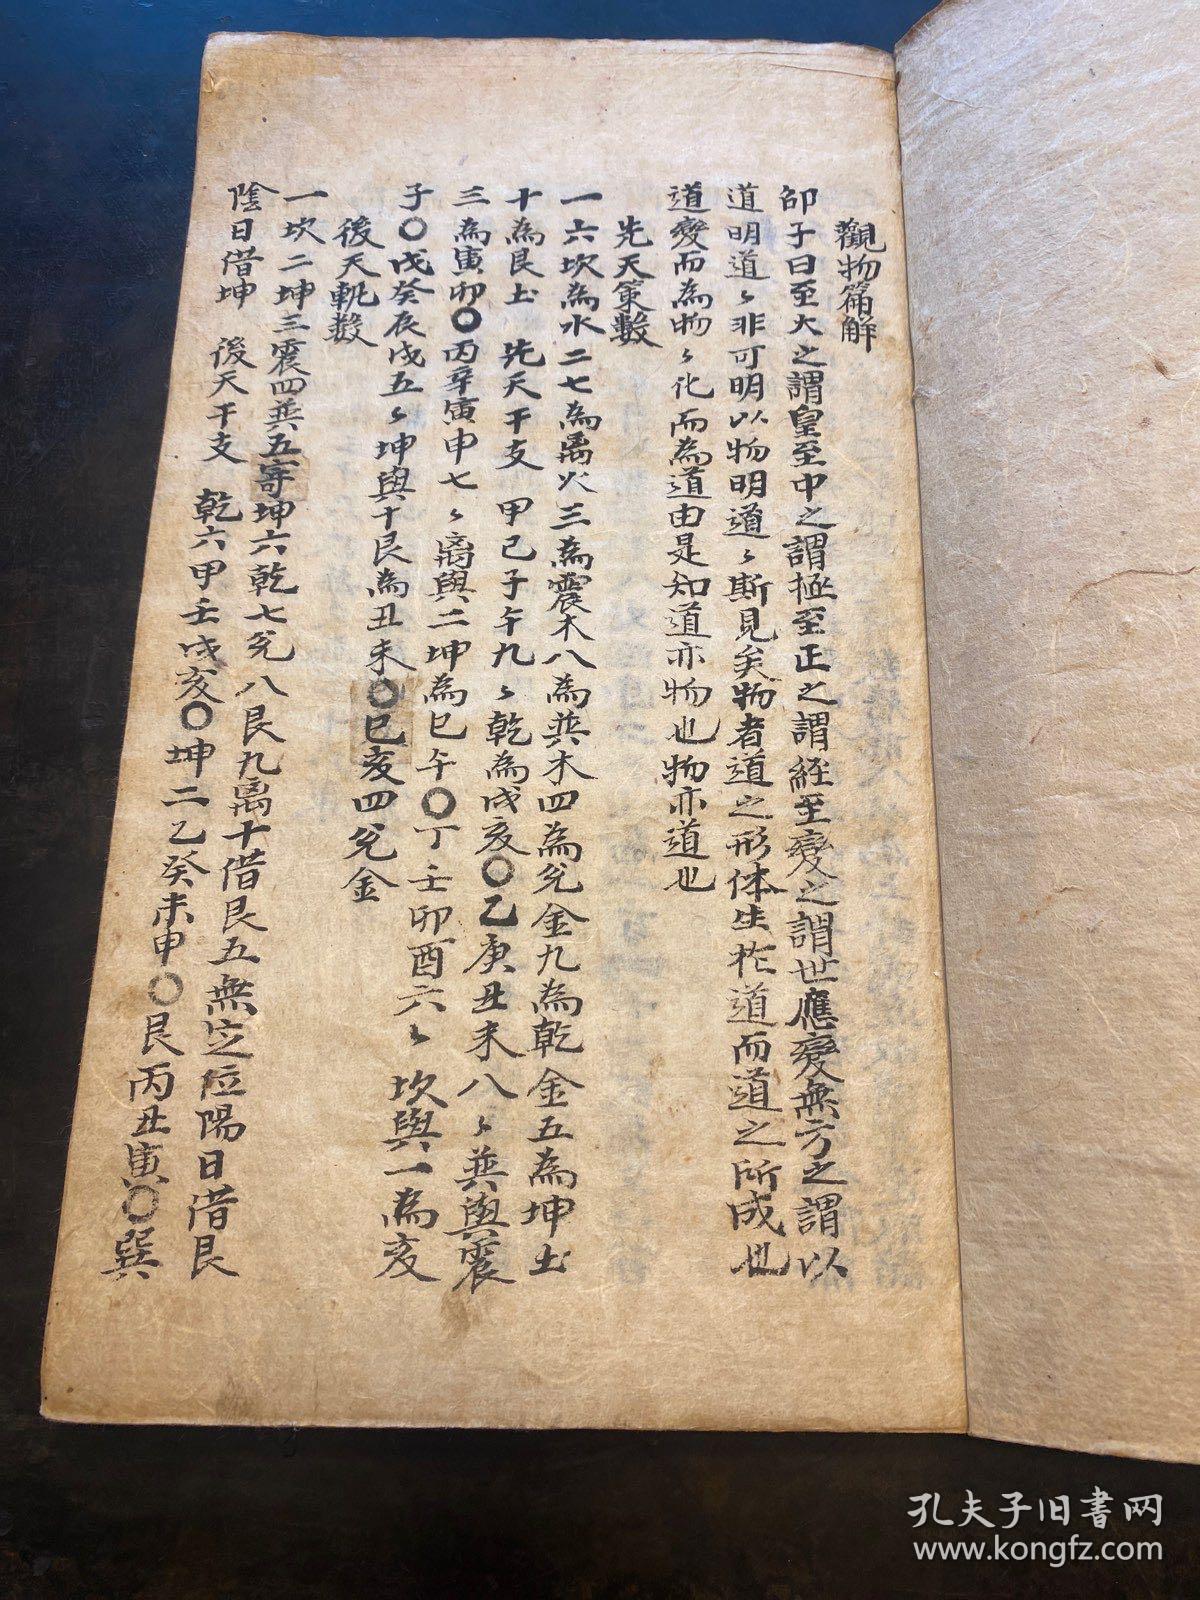 觀物篇解
邵子曰至大之謂皇至中之謂極至正之謂經至變之謂世應變無方之謂以
道明道〻非可明以物明道〻斯見矣物者道之形体生於道而道之所成也
道變而為物〻化而為道由是知道亦物也物亦道也
先天策數
一六坎為水二七為离火三為震木八為巽木四為兌金九為乾金五為坤土
十為艮土 先天干支 甲己子午九〻乾為戌亥〇乙庚丑未八〻巽與震
三為寅卯〇丙辛寅申七〻离與二坤為巳午〇丁壬卯酉六〻坎與一為亥
子〇戊癸辰戌五〻坤與十艮為丑未〇巳亥四兌金
後天軌數
一坎二坤三震四巽五寄坤六乾七兌八艮九离十借艮五無定位陽日借艮
陰日借坤 後天干支 乾六甲壬戌亥〇坤二乙癸未申〇艮丙丑寅〇巽
孔夫子旧书网
www.kongfz.com